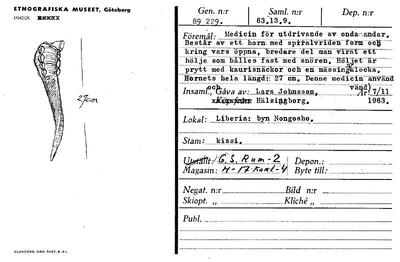 ETNOGRAFISKA MUSEET, Göteborg
Gen. n:r
Saml. n:r
Dep. n:r
89 229.
63.13.9.
Föremål: Medicin för utdrivande av onda andar.
Består av ett horn med spiralvriden form och
kring vars öppna, bredare del man virat ett
hölje som hålles fast med snören. Höljet är
prytt med kaurisnäckor och en mässingsklocka.
Hornets hela längd: 27 cm. Denne medicin använd
27cm
och
vänd)
Insaml. Gåva av: Lars Johnsson, År 7/11
Hälsingborg. 1963.
Lokal: Liberia: byn Nongosho.
Stam: kissi.
Utställt: G.S. Rum-2 Depon.:
Magasin: Byte till:
Negat. n:r Bild n:r
Skiopt. „ Kliché „
Publ.